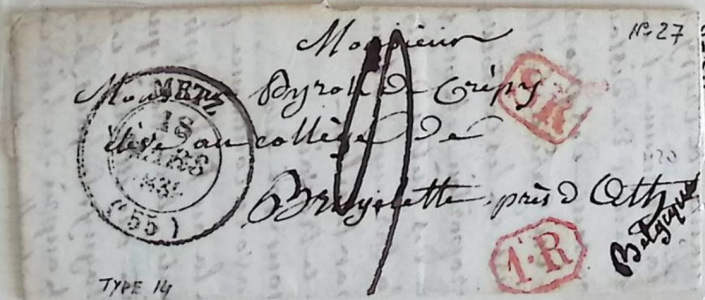 Monsieur
N° 27
Monsieur Byron de Crépy
SR
élève au collège de
Brugelette près d'Ath
Belgique
METZ
18
MARS
(55)
1·R
TYPE 14